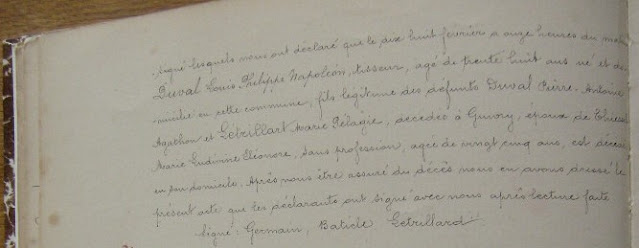 signé lesquels nous ont déclaré que le dix huit février à onze heures du matin
Duval Louis Philippe Napoléon, tisseur, agé de trente huit ans né et do-
micilié en cette commune, fils légitime des défunts Duval Pierre Antoine
Agathon et Lebrillart Marie Pélagie, decédés à Guivry, époux de
Marie Ludivine Eléonore, sans profession, agée de vingt cinq ans, est décédé
en son domicile. Après nous être assuré du décès nous en avons dressé le
présent acte que les déclarants ont signé avec nous après lecture faite
Signé: Germain, Lebrillard